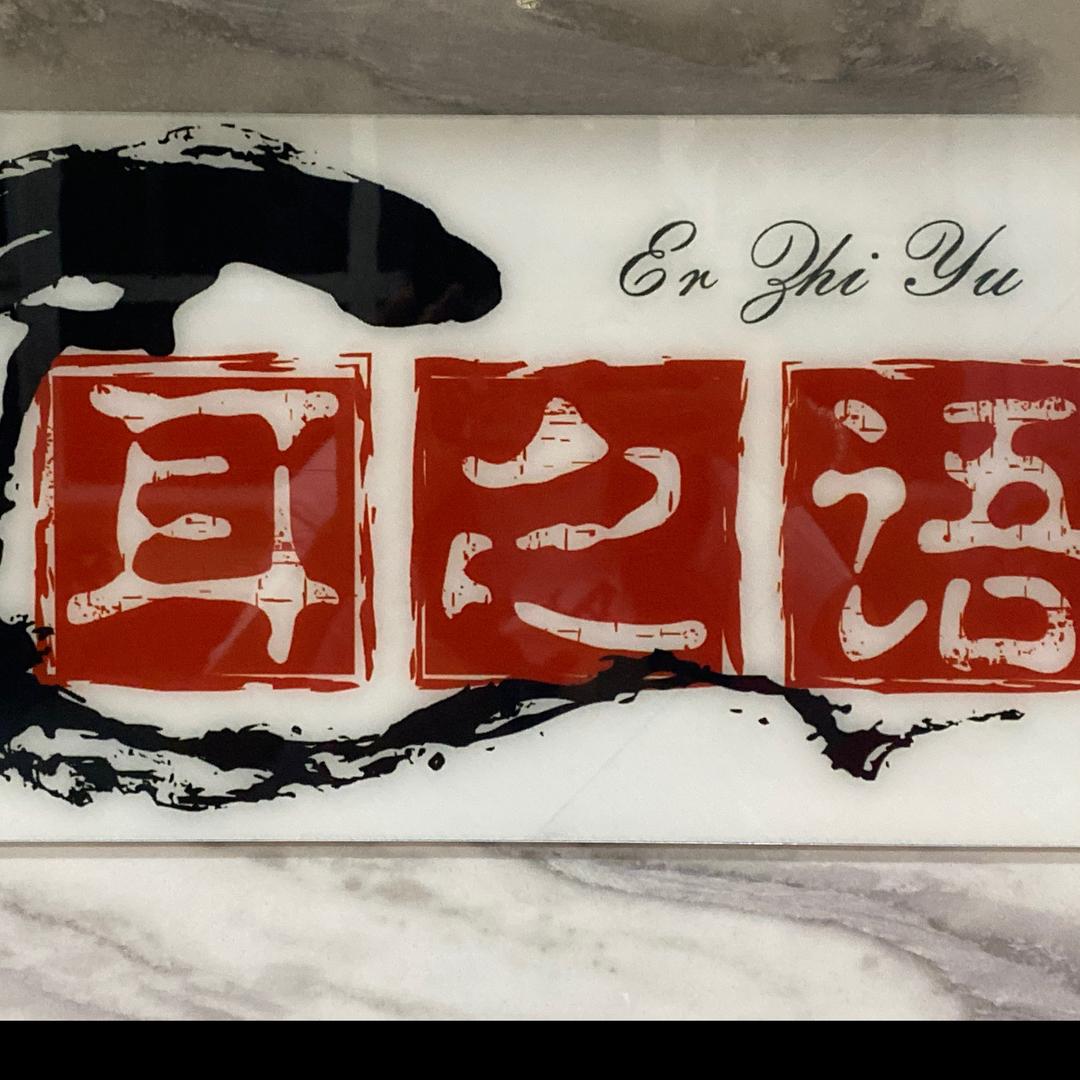 Er Zhi Yu
耳之语